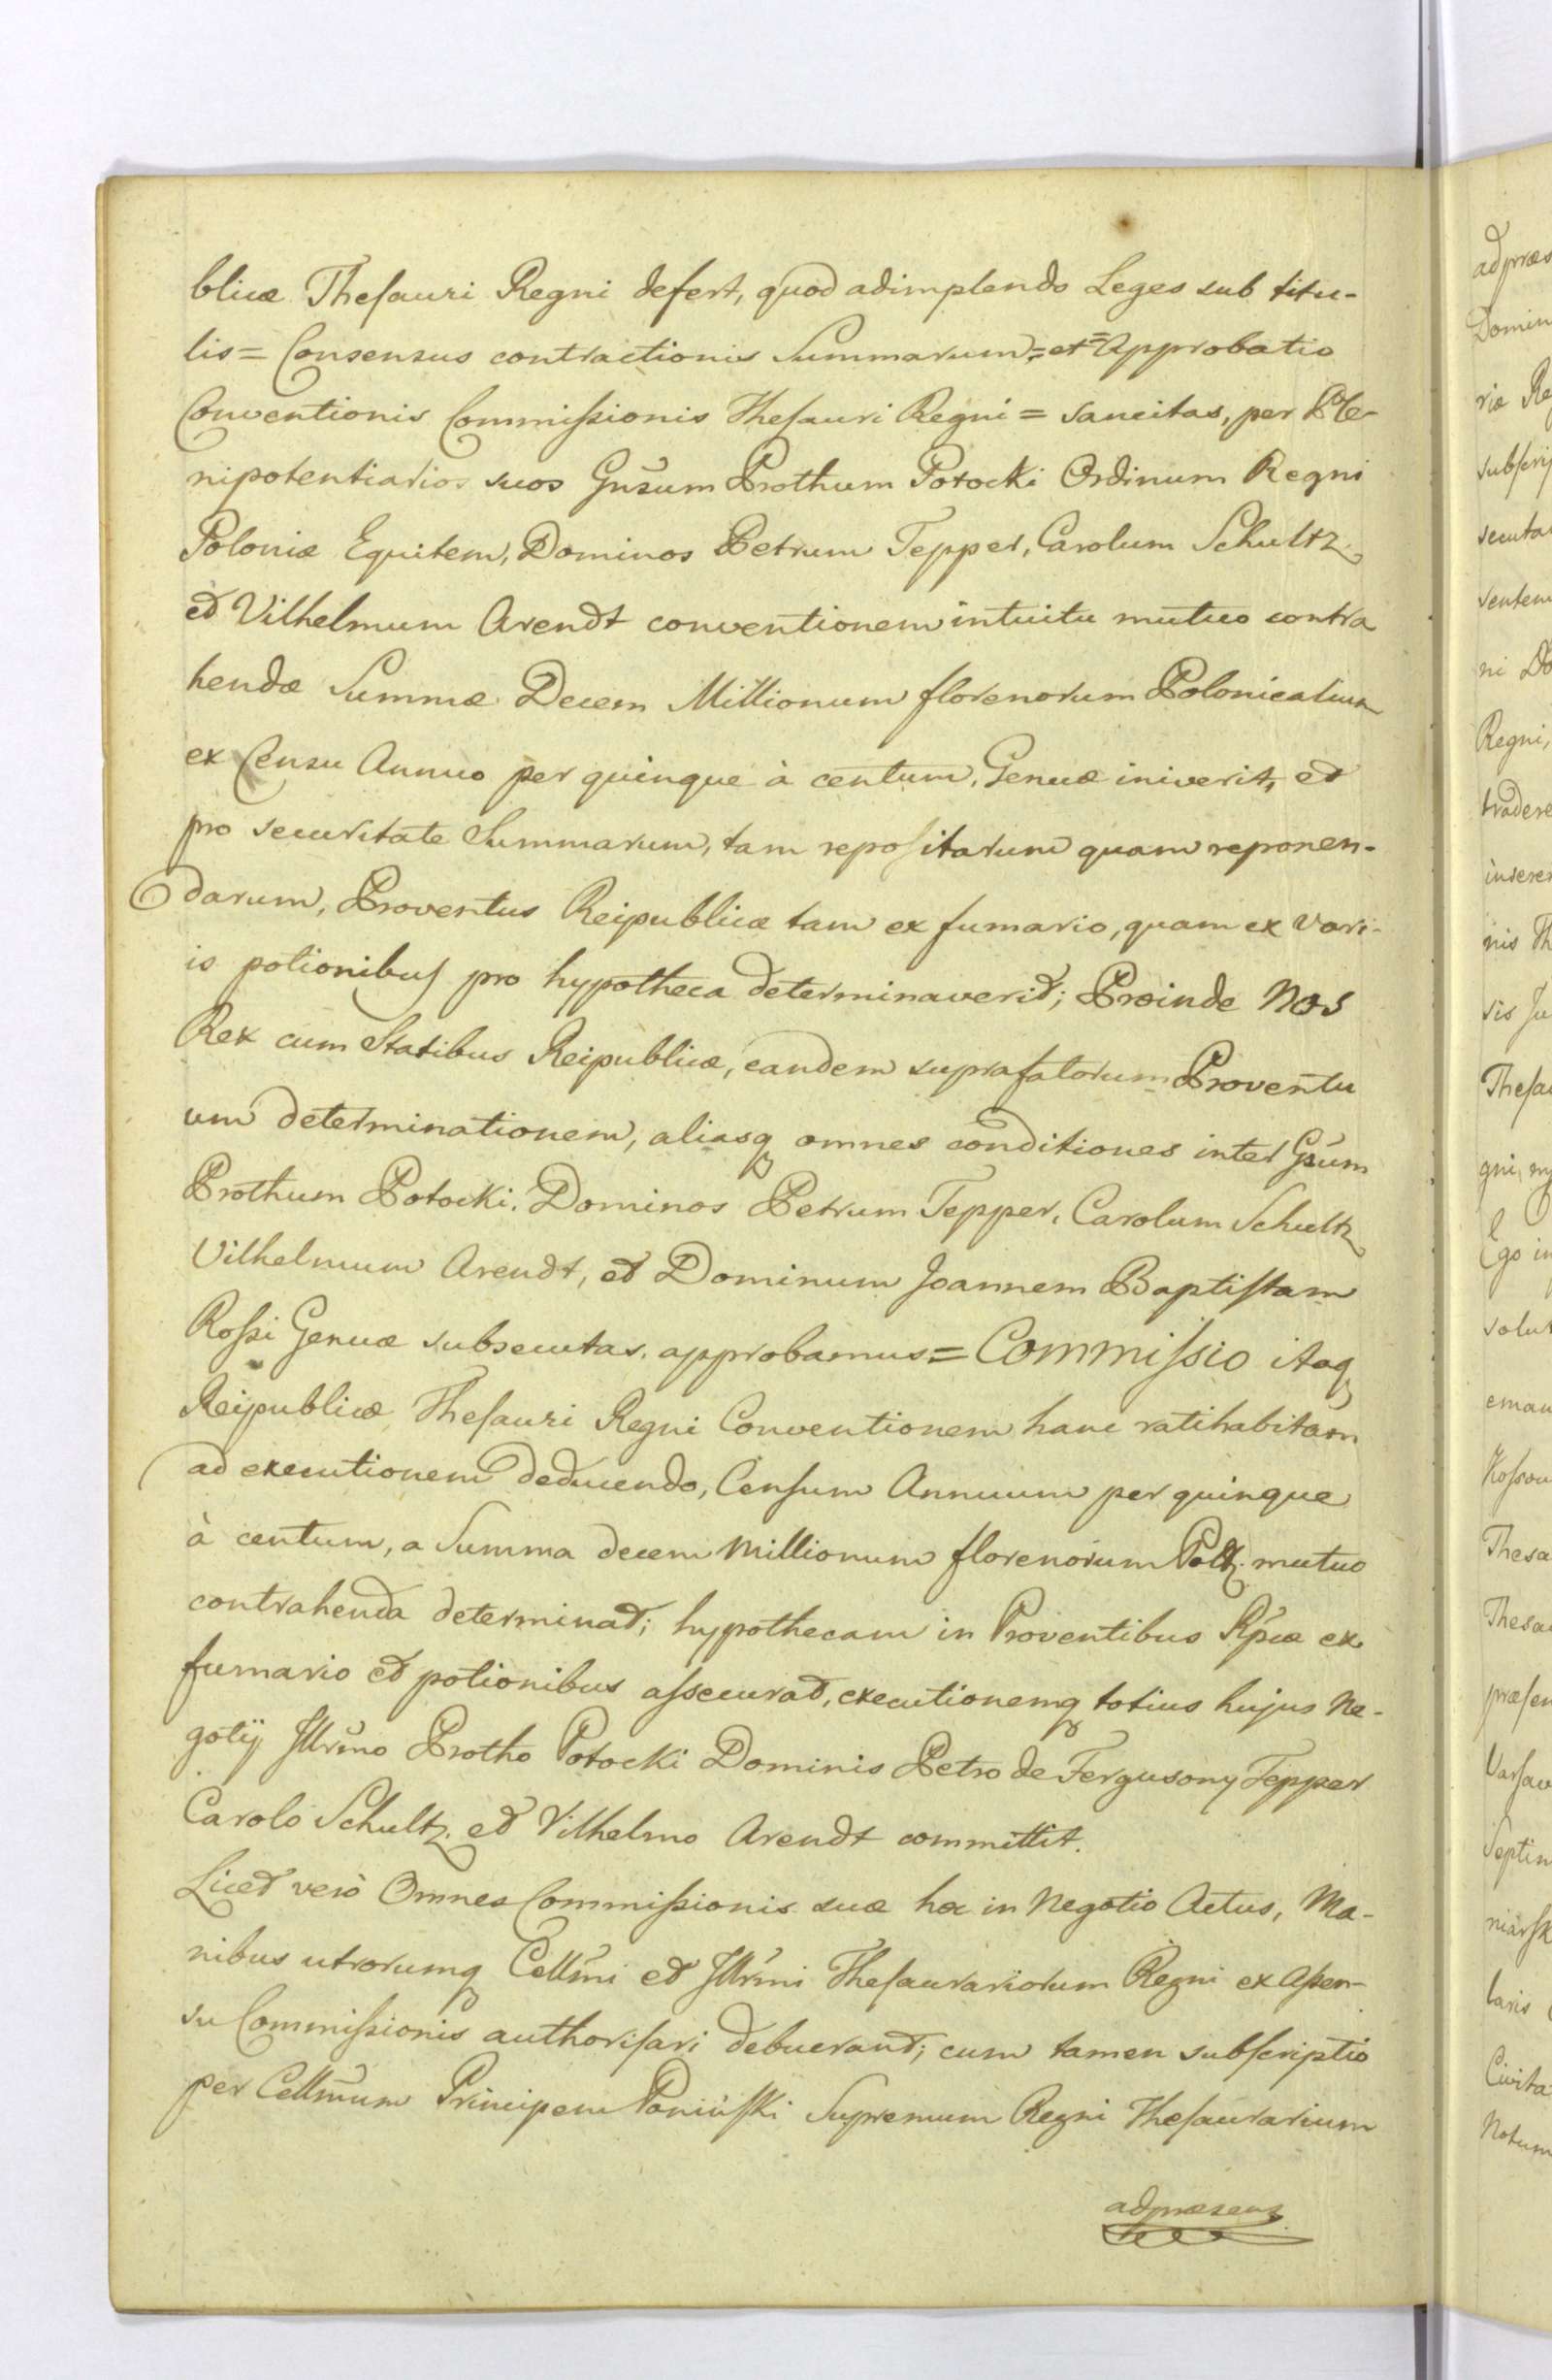 blicæ Thesauri Regni defert, quod adimplendo Leges sub titu-
lis = Consensus contractionis Summarum, = et = Approbatio
Conventionis Commissionis Thesauri Regni = sancitas, per Ple-
nipotentiarios suos Gnsum Prothum Potocki Ordinum Regni
Poloniæ Equitem, Dominos Petrum Tepper, Carolum Schultz
et Vilhelmum Arendt conventionem intuitu mutuo contra
hendæ Summæ Decem Millionum florenorum Polonicalium
ex Censu Annuo per quinque à centum, Genuæ iniverit, et
pro securitate Summarum, tam repositarum quam reponen-
darum, Proventus Reipublicæ tam ex fumario, quam ex vari-
is potionibus pro hypotheca determinaverit; Proinde Nos
Rex cum Statibus Reipublicæ, eandem suprafatorum Proventu
um determinationem, aliasq omnes conditiones inter Gsum
Prothum Potocki, Dominos Petrum Tepper, Carolum Schultz
Vilhelmum Arendt, et Dominum Joannem Baptistam
Rossi Genuæ subsecutas, approbamus = Commissio itaq
Reipublicæ Thesauri Regni Conventionem hanc ratihabitam
ad executionem deducendo, Censum Annuum per quinque
à centum, a Summa decem Millionum florenorum Poltz. mutuo
contrahenda determinat; hypothecam in Proventibus Rpcæ ex
fumario et potionibus assecurat, executionemq totius hujus Ne-
gotij Illrmo Protho Potocki Dominis Petro de Fergusony Tepper
Carolo Schultz et Vilhelmo Arendt committit.
Licet verò Omnes Commissionis suæ hoc in Negotio Actus, Ma-
nibus utrorumq Cellmi et Illrmi Thesaurariorum Regni ex Assen-
su Commissionis authorisari debuerant; cum tamen subscriptio
per Cellmum Principem Poniński Supremum Regni Thesaurarium
ad præsens
ad præs
Domin
riæ Re
subscrip
secuta
senten
ni Do
Regni,
tradere
inserer
nis Th
ris Ju
Thesau
gni, m
Ego in
solut
eman
Kossow
Thesa
Thesa
præsen
Varsav
Septin
niarsk
laris
Civita
Notum